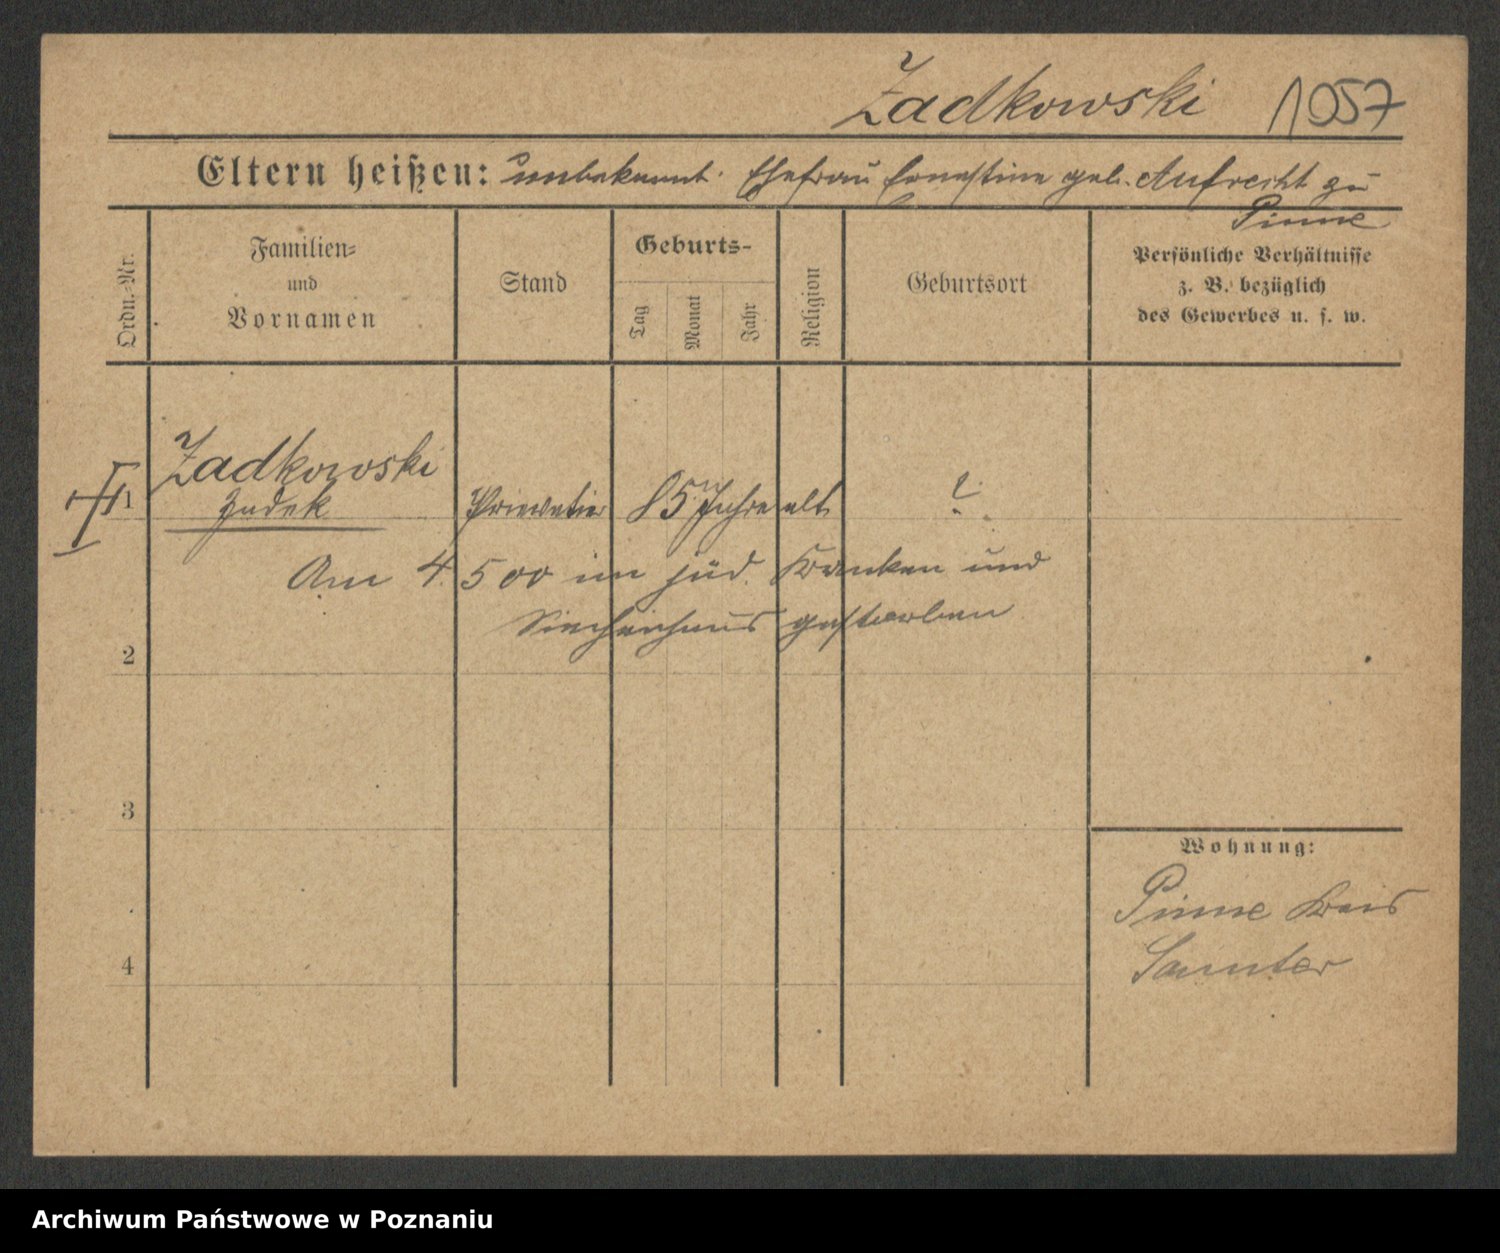 Zadkowski 1057
Eltern heißen: unbekannt. Ehefrau Ernestine geb. Aufrecht zu
Pinne
Ordn.-Nr.
Familien-
und
Vornamen
Stand
Geburts-
Tag
Monat
Jahr
Religion
Geburtsort
Persönliche Verhältnisse
z. B. bezüglich
des Gewerbes u. s. w.
Zadkowski
1 Zadek Privatier 85 Jahre alt ?
Am 4. 5 00 im jüd. Kranken und
Siechenhaus gestorben
2
3
Wohnung:
Pinne Kreis
Samter
4
Archiwum Państwowe w Poznaniu